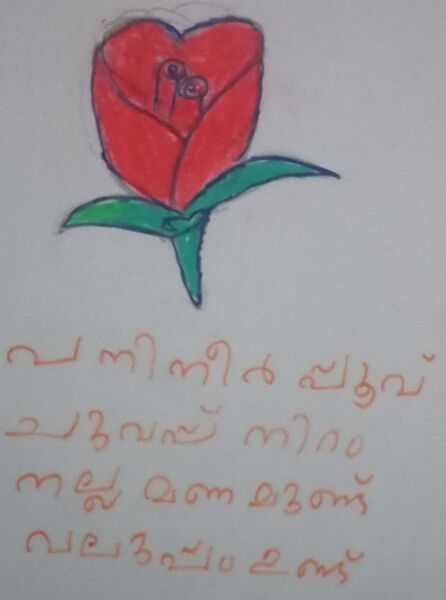 പനിനീർ പ്പൂവ്
ചുവപ്പ് നിറം
നല്ല മണമുണ്ട്
വലുപ്പം ഉണ്ട്